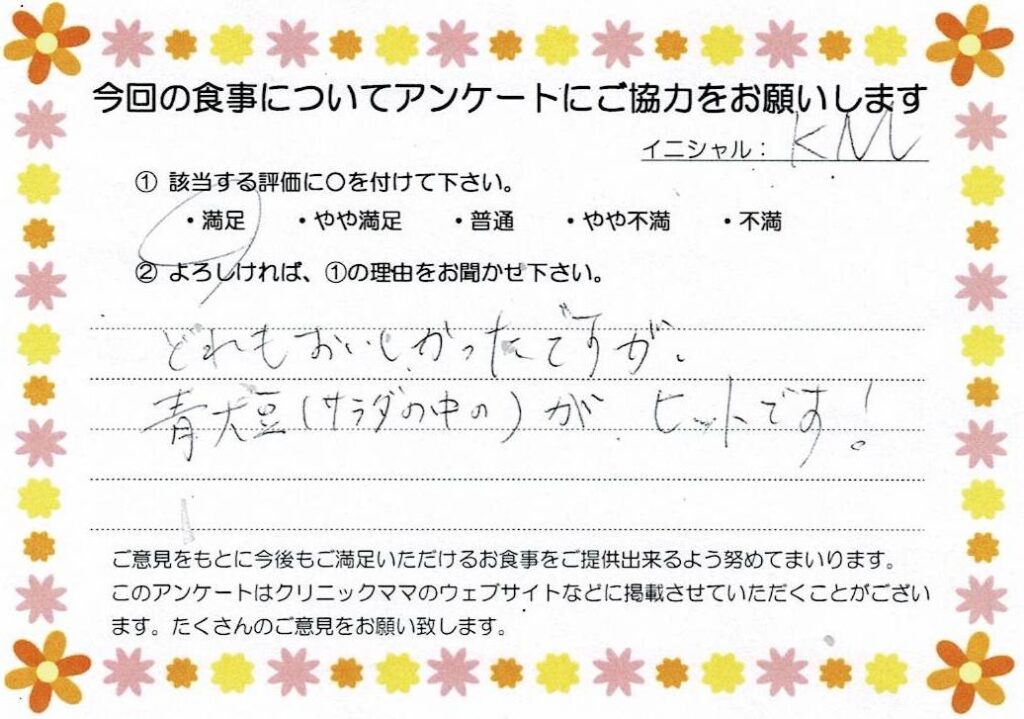 今回の食事についてアンケートにご協力をお願いします
イニシャル： KM
① 該当する評価に○を付けて下さい。
・満足 ・やや満足 ・普通 ・やや不満 ・不満
② よろしければ、①の理由をお聞かせ下さい。
どれもおいしかったですが、
青大豆(サラダの中の)が、ヒットです!
ご意見をもとに今後もご満足いただけるお食事をご提供出来るよう努めてまいります。
このアンケートはクリニックママのウェブサイトなどに掲載させていただくことがござい
ます。たくさんのご意見をお願い致します。